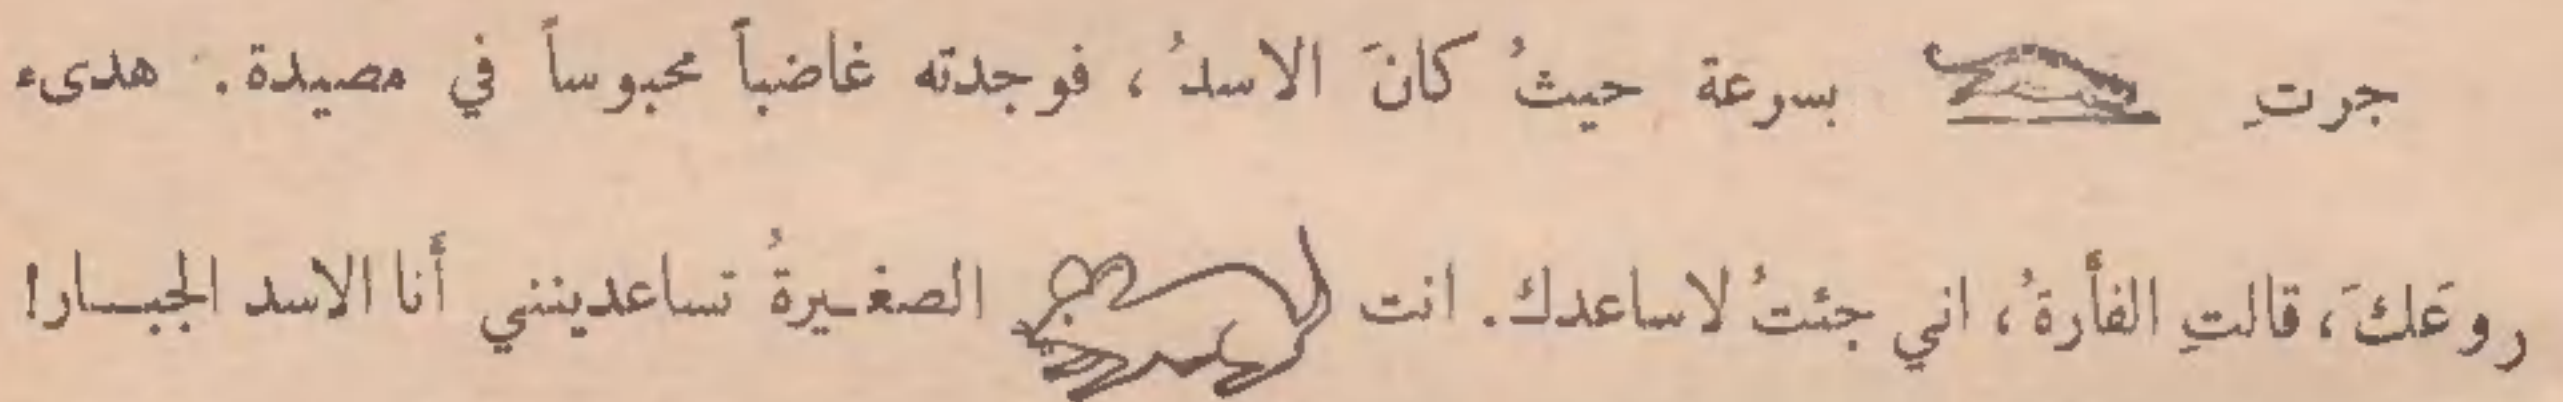 جرتِ بسرعة حيثُ كانَ الاسدُ ، فوجدته غاضباً محبوساً في مصيدة . هدىء
روعَكَ ، قالتِ الفأرةُ ، اني جئتُ لاساعدك . انت الصغيرةُ تساعدينني أنا الاسد الجبار!